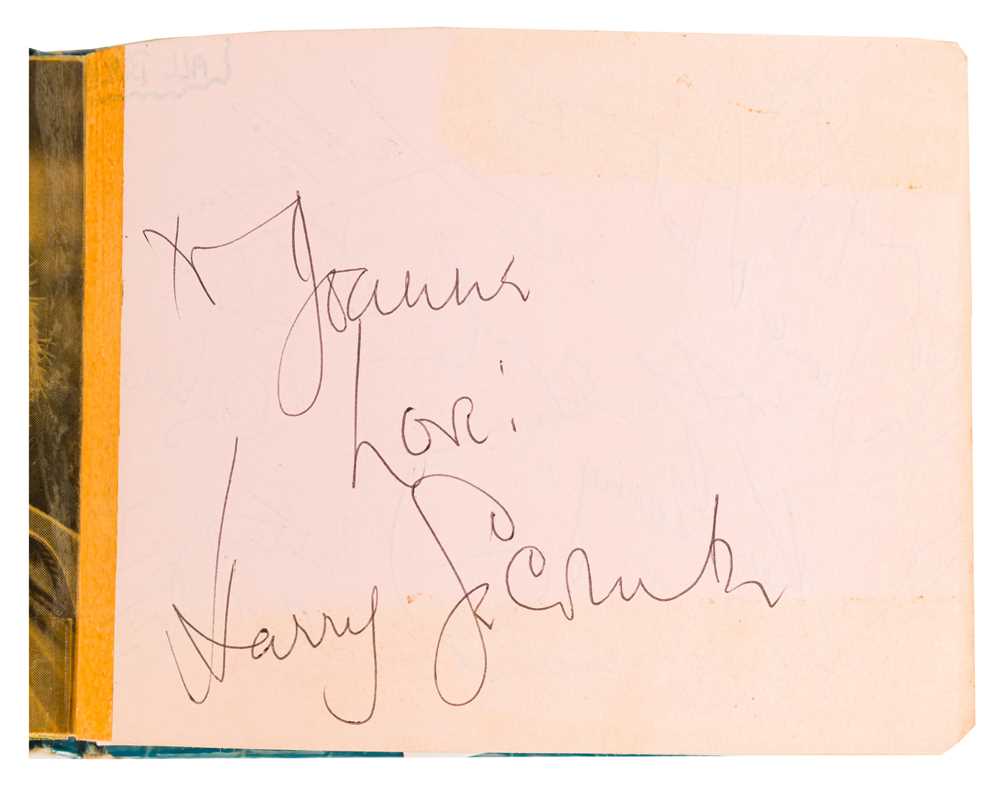 To Joanna
Love!
Harry Secombe